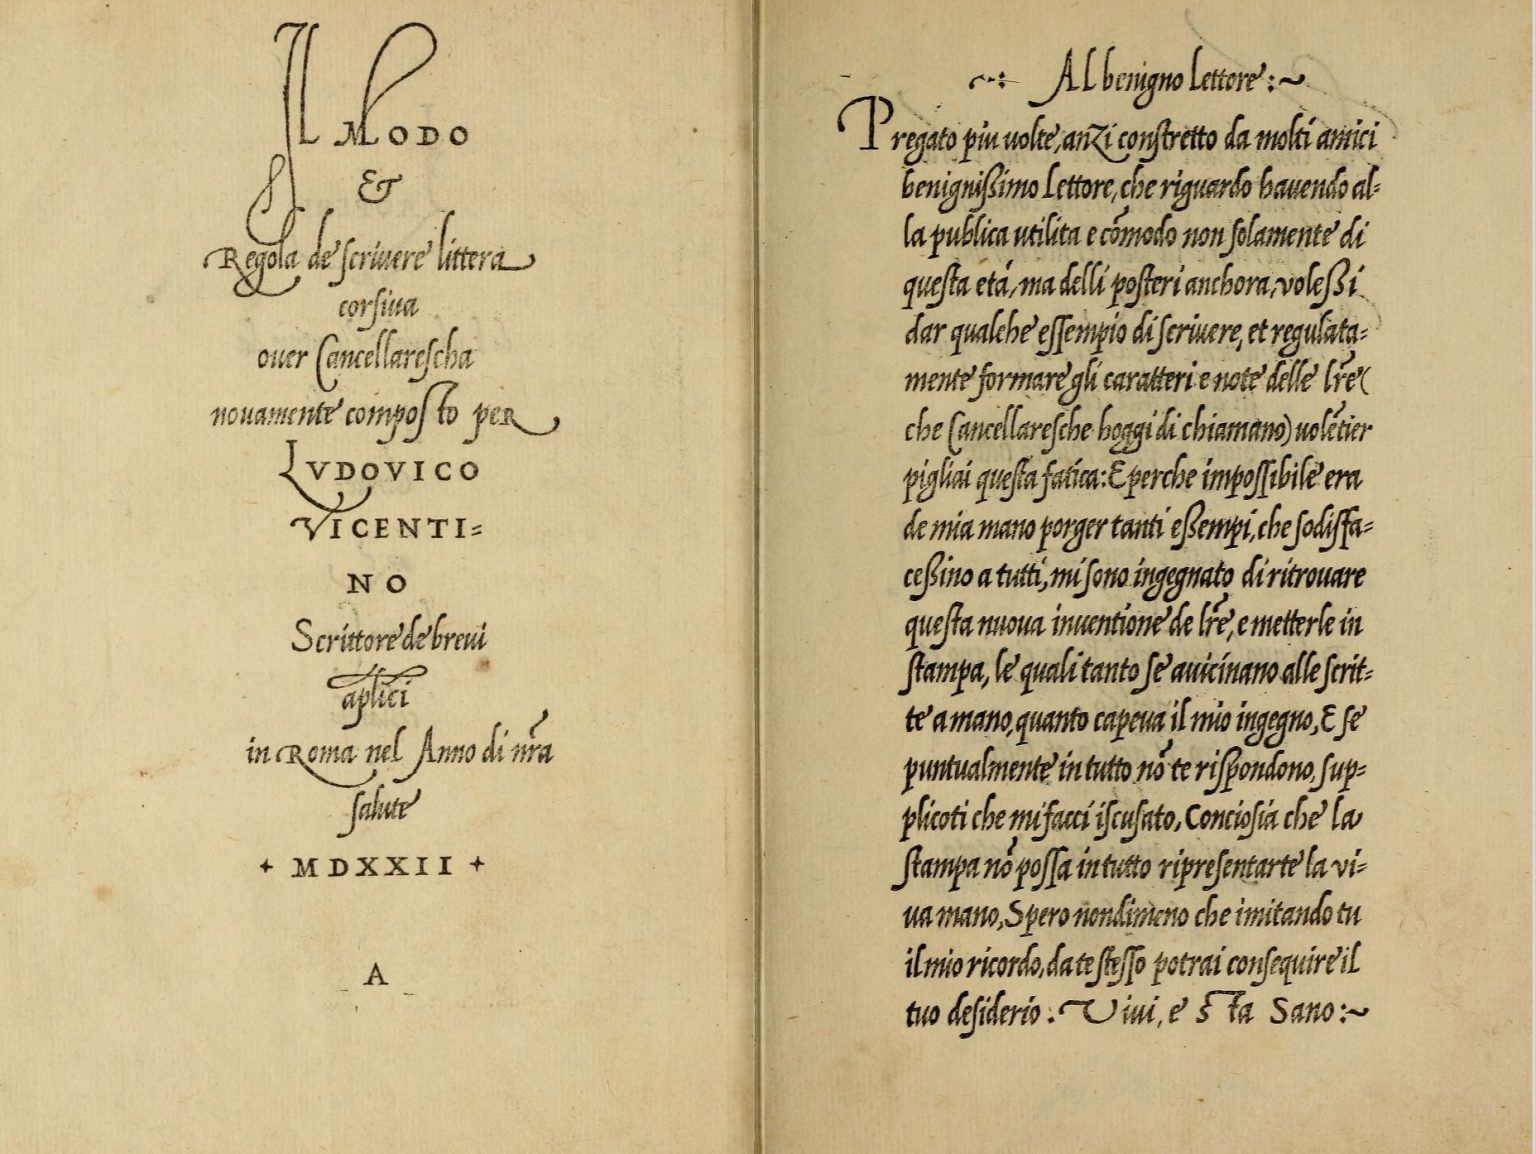 Il Modo
&
Regola de scrivere littera
corsiva
over Cancellarescha
novamente composto per
LVDOVICO
VICENTI=
NO
Scrittore de brevi
aplici
in Roma nel Anno di nr̃a
salute
+ MDXXII +
A
Al benigno lettore :~
Pregato piu uolte, anzi constretto da molti amici
benignissimo Lettore, che riguardo havendo al=
la publica utilita e cõmodo non solamente di
questa etá, ma delli posteri anchora, volessi
dar qualche essempio di scrivere, et regulata=
mente formare gli caratteri e note delle lr̃e (
che Cancellaresche hoggi di chiamano) uolẽtier
pigliai questa fatica: E perche impossibile era
de mia mano porger tanti essempi, che sodisfa=
cessino a tutti, mi sono ingegnato di ritrouare
questa nuova inventione de lr̃e, e metterle in
stampa, le quali tanto se avicinano alle scrit=
te a mano, quanto capeva il mio ingegno, E se
puntualmente in tutto nõ te rispondono, sup=
plicoti che mi facci iscusato, Conciosia che la
stampa nõ possa in tutto ripresentarte la vi=
va mano, Spero nondimeno che imitando tu
il mio ricordo, da te stesso potrai consequire il
tuo desiderio : Vivi, e Sta Sano :~